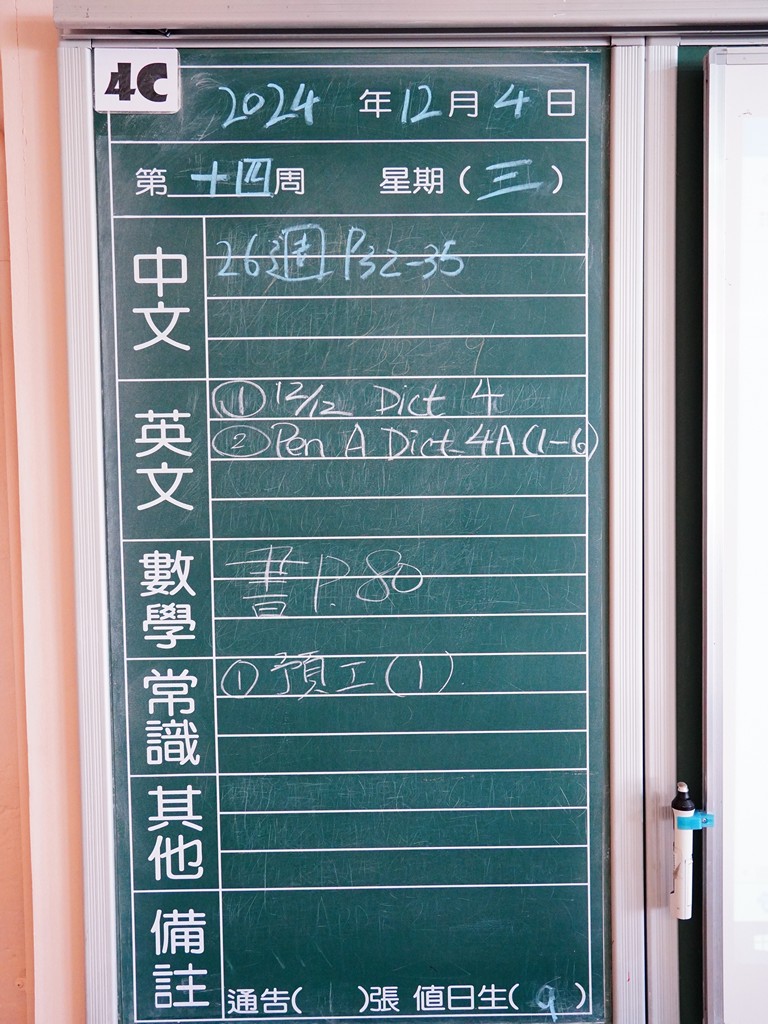 4C
2024 年 12 月 4 日
第 十四 周 星期 ( 三 )
中文
26週 P32-35
英文
① 12/12 Dict 4
② Pen A Dict 4A(1-6)
數學
書 P.80
常識
① 預工(1)
其他
備註
通告( )張 值日生( 9 )